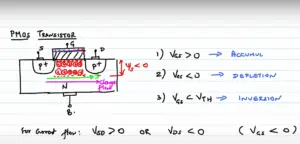 PMOS TRANSISTOR
G
S
D
p+
p+
ψs < 0
N
B
1) VGS > 0 → ACCUMUL
2) VGS < 0 → DEPLETION
3) VGS < VTH → INVERSION
For current flow: VSD > 0 OR VDS < 0 (VGS < 0)